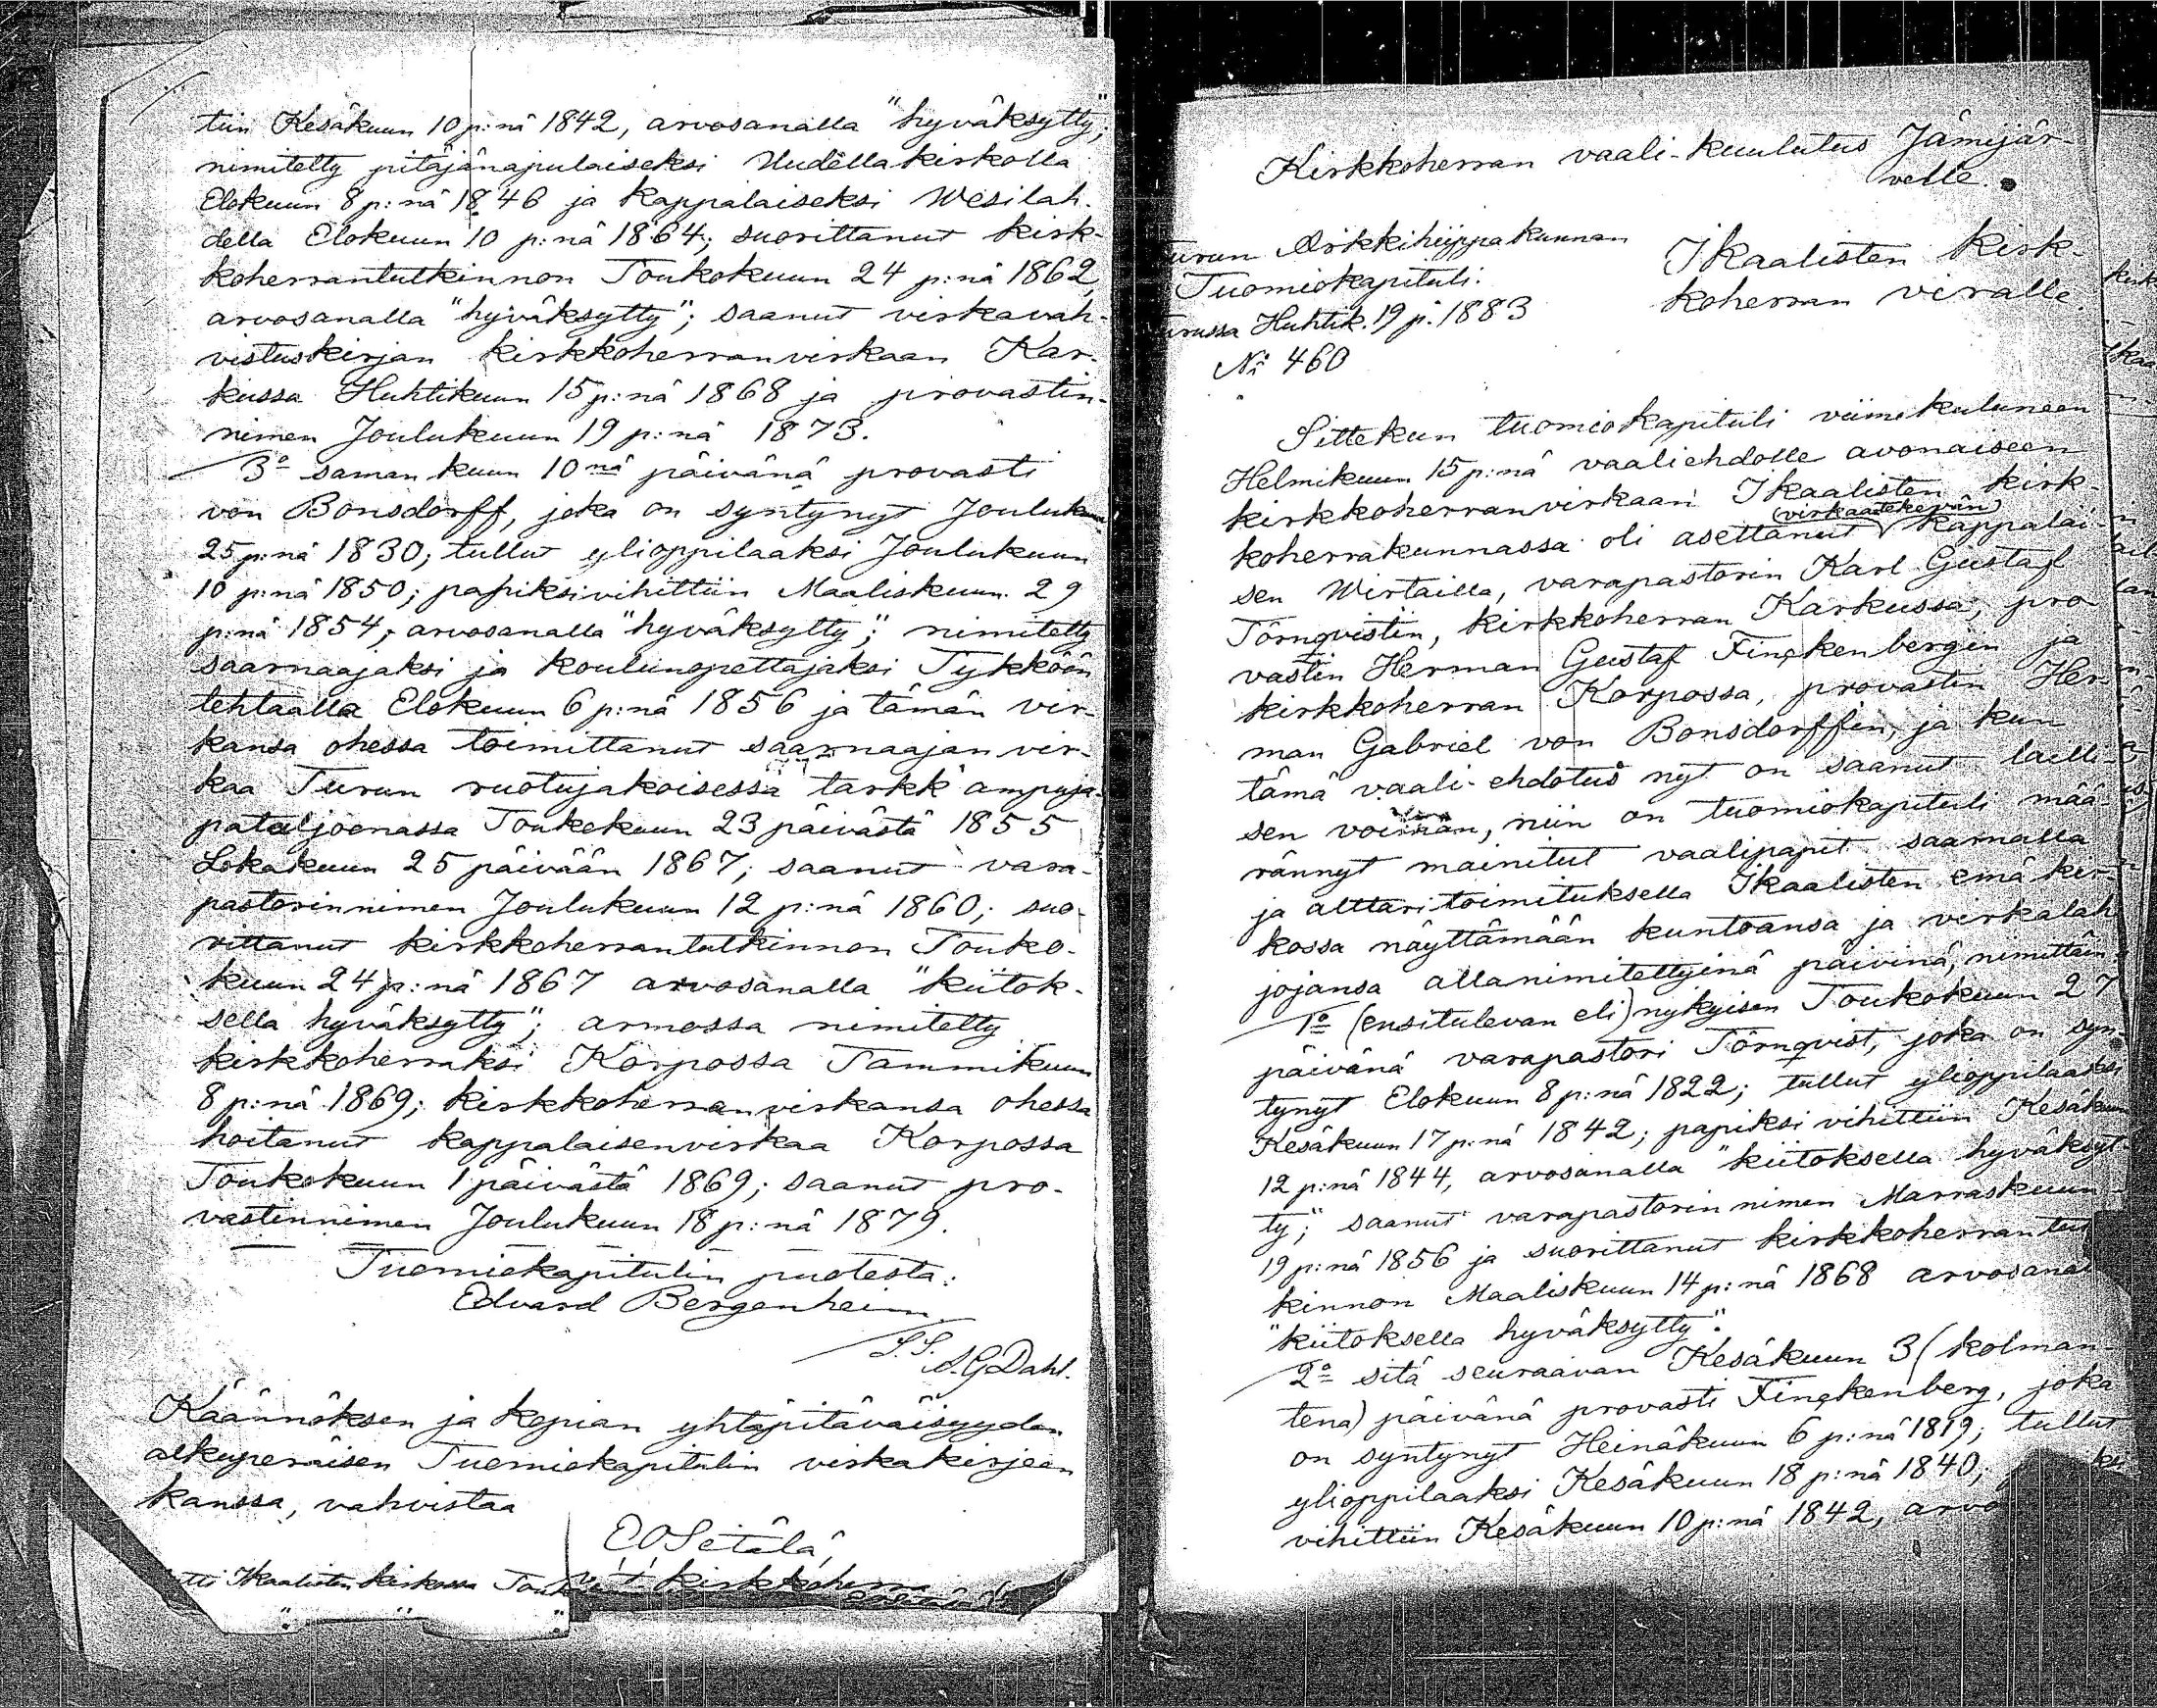 tiin Kesäkuun 10 p:nä 1842, arvosanalla "hyväksytty";
nimitetty pitäjänapulaiseksi Uudellakirkolla
Elokuun 8 p:nä 1846 ja kappalaiseksi Wesilah-
della Elokuun 10 p:nä 1864; suorittanut kirk-
koherrantutkinnon Toukokuun 24 p:nä 1862,
arvosanalla "hyväksytty"; saanut virkavah-
vistuskirjan kirkkoherranvirkaan Kar-
kussa Huhtikuun 15 p:nä 1868 ja provastin-
nimen Joulukuun 19 p:nä 1873.
3:o saman kuun 10nä päivänä provasti
von Bonsdorff, joka on syntynyt Joulukuun
25 p:nä 1830; tullut ylioppilaaksi Joulukuun
10 p:nä 1850; papiksivihittiin Maaliskuun 29
p:nä 1854, arvosanalla "hyväksytty"; nimitetty
saarnaajaksi ja koulunopettajaksi Tykköön
tehtaalla Elokuun 6 p:nä 1856 ja tämän vir-
kansa ohessa toimittanut saarnaajan vir-
kaa Turun ruotujakoisessa tarkk'ampuja-
pataljoonassa Toukokuun 23 päivästä 1855
Lokakuun 25 päivään 1867; saanut vara-
pastorinnimen Joulukuun 12 p:nä 1860; suo-
rittanut kirkkoherrantutkinnon Touko-
kuun 24 p:nä 1867 arvosanalla "kiitok-
sella hyväksytty"; armossa nimitetty
kirkkoherraksi Korpossa Tammikuun
8 p:nä 1869; kirkkoherranvirkansa ohessa
hoitanut kappalaisenvirkaa Korpossa
Toukokuun 1 päivästä 1869; saanut pro-
vastinnimen Joulukuun 18 p:nä 1879.
Tuomiokapitulin puolesta:
Edvard Bergenheim
A.G. Dahl.
Käännöksen ja kopian yhtäpitäväisyyden
alkuperäisen Tuomiokapitulin virkakirjean
kanssa, vahvistaa
E O Setälä,
v.t. kirkkoherra
Ikaalisten kirkossa
Kirkkoherran vaali-kuulutus Jämijär-
velle.
Turun Arkkihiippakunnan
Tuomiokapituli.
Turussa Huhtik. 19 p. 1883
No 460
Ikaalisten kirk-
koherran viralle.
Sittekun tuomiokapituli viimekuluneen
Helmikuun 15 p:nä vaaliehdolle avonaiseen
kirkkoherranvirkaan Ikaalisten kirk-
koherrakunnassa oli asettanut (virkaatekevän) kappalai-
sen Wirtailla, varapastorin Karl Gustaf
Törnqvistin, kirkkoherran Karkussa, pro-
vastin Herman Gustaf Finckenbergin ja
kirkkoherran Korpossa, provastin Her-
man Gabriel von Bonsdorffin, ja kun
tämä vaali-ehdotus nyt on saanut lailli-
sen voiman, niin on tuomiokapituli mää-
rännyt mainitut vaalipapit saarnalla
ja alttaritoimituksella Ikaalisten emäkir-
kossa näyttämään kuntoansa ja virkalah-
jojansa allanimitettyinä päivinä, nimittäin:
1:o (ensitulevan eli) nykyisen Toukokuun 27
päivänä varapastori Törnqvist, joka on syn-
tynyt Elokuun 8 p:nä 1822; tullut ylioppilaaksi
Kesäkuun 17 p:nä 1842; papiksi vihittiin Kesäkuun
12 p:nä 1844, arvosanalla "kiitoksella hyväksyt-
ty"; saanut varapastorin nimen Marraskuun
19 p:nä 1856 ja suorittanut kirkkoherrantut-
kinnon Maaliskuun 14 p:nä 1868 arvosanal
"kiitoksella hyväksytty".
2:o sitä seuraavan Kesäkuun 3 (kolman-
tena) päivänä provasti Finckenberg, joka
on syntynyt Heinäkuun 6 p:nä 1819; tullut
ylioppilaaksi Kesäkuun 18 p:nä 1840;
vihittiin Kesäkuun 10 p:nä 1842, arvo